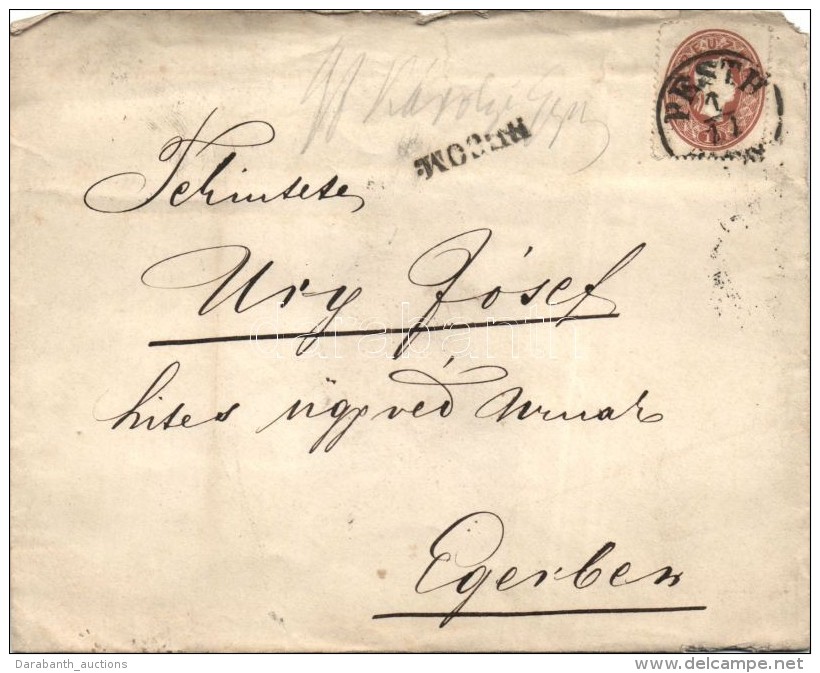 PESTH
7
11
RECOM.
Tekintetes
Ury Jósef
hites ügyvéd Urnak
Egerben
darabanth
Darabanth_auctions
www.delcampe.net